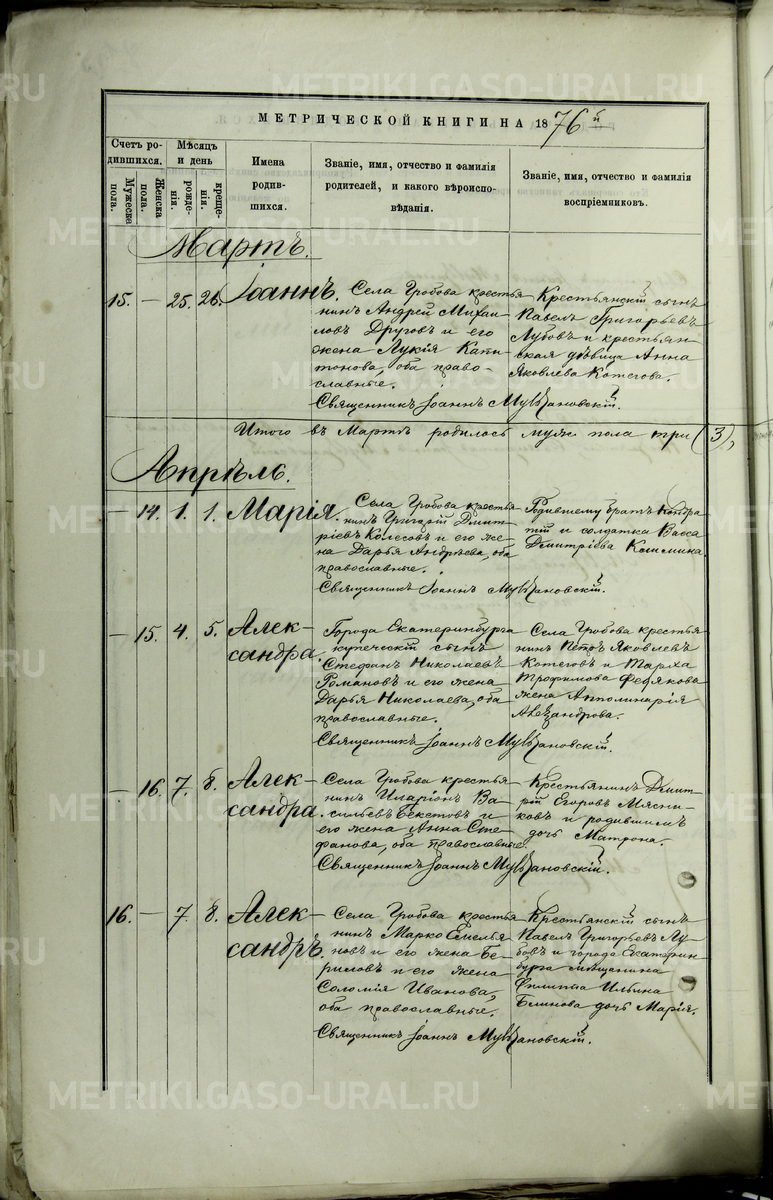 МЕТРИЧЕСКОЙ КНИГИ НА 1876й
Счетъ ро-
дившихся.
Мужеска
пола.
Женска
пола.
Мѣсяцъ
и день
рожде-
нія.
креще-
нія.
Имена
родив-
шихся.
Званіе, имя, отчество и фамилія
родителей, и какого вѣроиспо-
вѣданія.
Званіе, имя, отчество и фамилія
воспріемниковъ.
Мартъ.
15. — 25. 26. Іоаннъ.
Села Гробова крестья-
нинъ Андрей Михаи-
ловъ Друговъ и его
жена Лукія Капи-
тонова, оба право-
славные.
Крестьянскій сынъ
Павелъ Григорьевъ
Лубовъ и крестьян-
ская дѣвица Анна
Яковлева Котегова.
Священникъ Іоаннъ
Итого въ Мартѣ родилось муж. пола три (3),
Апрѣль.
— 14. 1. 1. Марія.
Села Гробова крестья-
нинъ Григорій Дмит-
ріевъ Колесовъ и его же-
на Дарья Андрѣева, оба
православные.
Родившему братъ Кондра-
тій и солдатка Васса
Дмитріева
Священникъ Іоаннъ
— 15. 4. 5. Алек-
сандра.
Города Екатеринбурга
купеческій сынъ
Стефанъ Николаевъ
Романовъ и его жена
Дарья Николаева, оба
православные.
Села Гробова крестья-
нинъ Петръ Яковлевъ
Котеговъ и Тарха
Трофимова Федякова
жена Апполинарія
Александрова.
Священникъ Іоаннъ
— 16. 7. 8. Алек-
сандра.
Села Гробова крестья-
нинъ Иларіонъ Ва-
сильевъ Бекетовъ и
его жена Анна Сте-
фанова, оба православные.
Крестьянинъ Дмит-
рій Егоровъ Мясни-
ковъ и родившимъ
дочь Матрона.
Священникъ Іоаннъ
16. — 7. 8. Алек-
сандръ.
Села Гробова крестья-
нинъ Марко Емелья-
новъ и его жена Бе-
риловъ и его жена
Соломія Иванова,
оба православные.
Крестьянскій сынъ
Павелъ Григорьевъ Лу-
бовъ и города Екатерин-
бурга мѣщанина
Филиппа Ильина
Блинова дочь Марія.
Священникъ Іоаннъ
METRIKI.GASO-URAL.RU